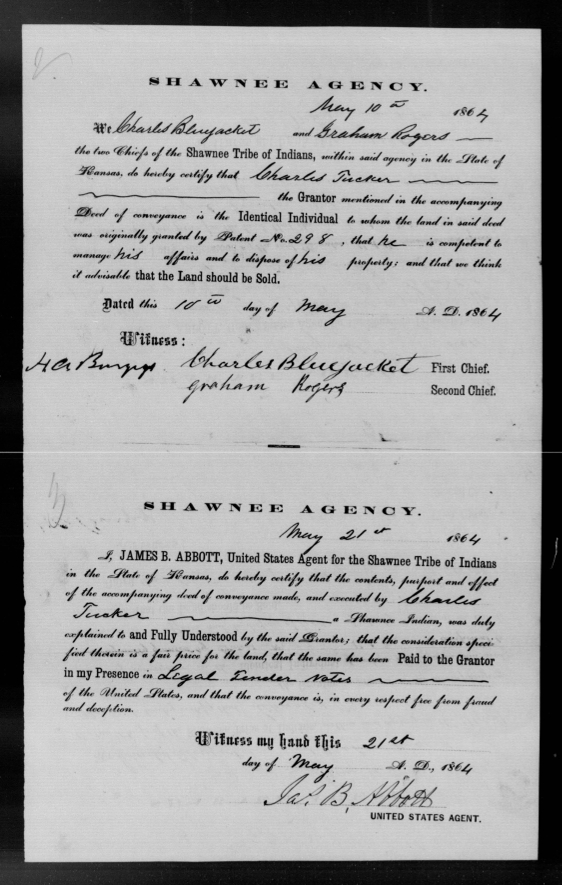 SHAWNEE AGENCY.
May 10th 1864
We Charles Bluejacket and Graham Rogers
the two Chiefs of the Shawnee Tribe of Indians, within said agency in the State of
Kansas, do hereby certify that Charles Tucker
the Grantor mentioned in the accompanying
Deed of conveyance is the Identical Individual to whom the land in said deed
was originally granted by Patent No. 298, that he is competent to
manage his affairs and to dispose of his property; and that we think
it advisable that the Land should be Sold.
Dated this 10th day of May A. D. 1864
Witness:
Charles Bluejacket First Chief.
Graham Rogers Second Chief.
SHAWNEE AGENCY.
May 21st 1864
I, JAMES B. ABBOTT, United States Agent for the Shawnee Tribe of Indians
in the State of Kansas, do hereby certify that the contents, purport and effect
of the accompanying deed of conveyance made, and executed by Charles
Tucker a Shawnee Indian, was duly
explained to and Fully Understood by the said Grantor; that the consideration speci-
fied therein is a fair price for the land, that the same has been Paid to the Grantor
in my Presence in Legal Tender Notes
of the United States, and that the conveyance is, in every respect free from fraud
and deception.
Witness my hand this 21st
day of May A. D., 1864
Jas. B. Abbott
UNITED STATES AGENT.